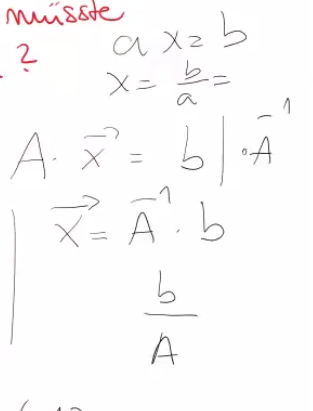 müsste
?
a x = b
x = b/a =
A · x⃗ = b | · A⁻¹
x⃗ = A⁻¹ · b
b
A